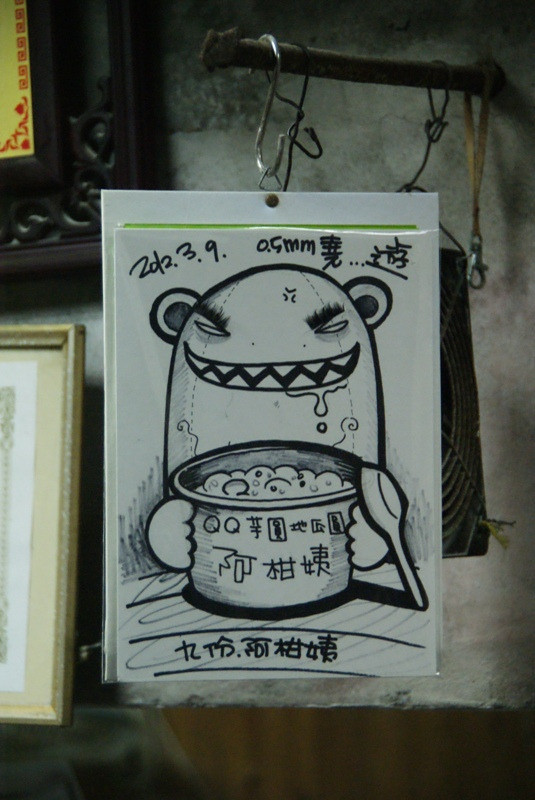 2012.3.9. 0.5mm堯...遊
QQ芋圓地瓜圓
阿柑姨
九份.阿柑姨